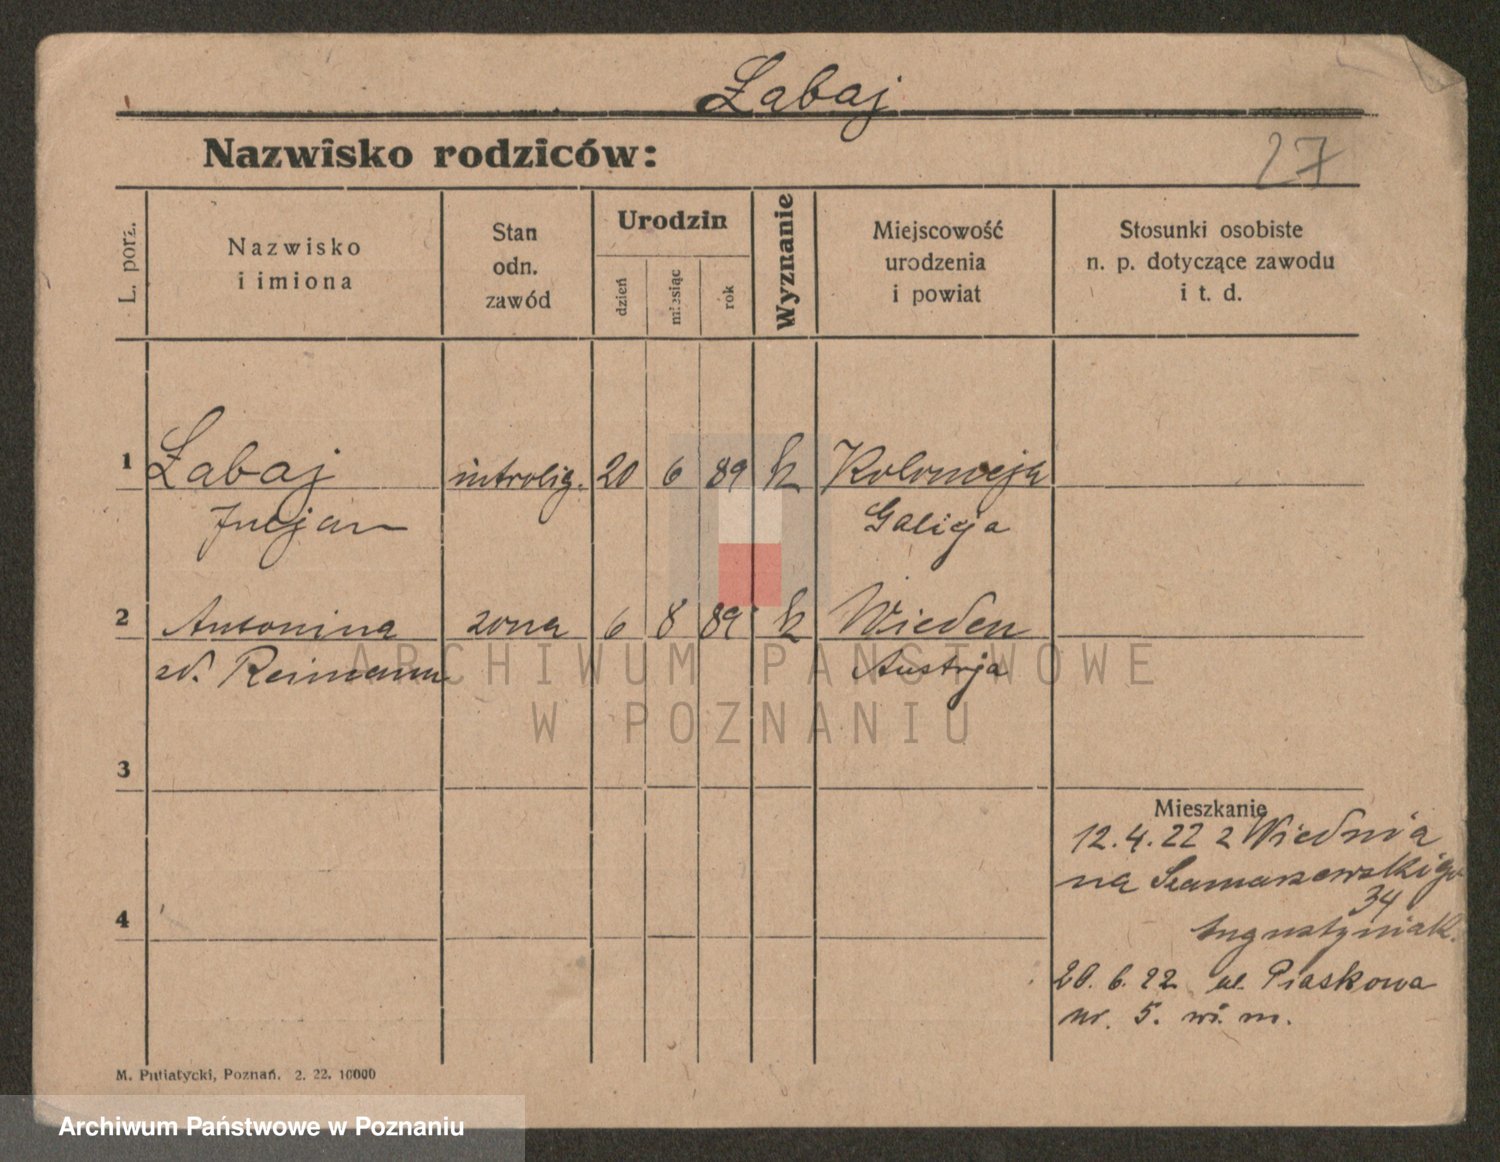 Łabaj
Nazwisko rodziców:
27
L. porz.
Nazwisko
i imiona
Stan
odn.
zawód
Urodzin
dzień
miesiąc
rok
Wyznanie
Miejscowość
urodzenia
i powiat
Stosunki osobiste
n. p. dotyczące zawodu
i t. d.
1 Łabaj introlig. 20 6 89 k Kolomeja
Galicja
2 Antonina zona 6 8 89 k Wieden
zd. Reimann Austrja
ARCHIWUM PAŃSTWOWE
W POZNANIU
3
Mieszkanie
12.4.22 z Wiednia
na Szamarzewskiego
34
4
20.6.22 ul. Piaskowa
nr. 5. w. m.
M. Putiatycki, Poznań. 2. 22. 10000
Archiwum Państwowe w Poznaniu